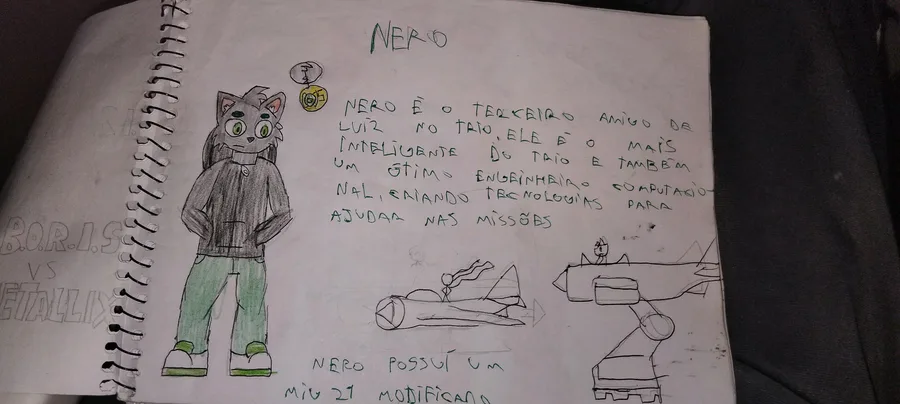 NERO
NERO É O TERCEIRO AMIGO DE
LUÍZ NO TRIO, ELE É O MAIS
INTELIGENTE DO TRIO E TAMBÉM
UM ÓTIMO ENGEINHEIRO COMPUTACIO
NAL, CRIANDO TECNOLOGIAS PARA
AJUDAR NAS MISSÕES
NERO POSSUÍ UM
MIU 21 MODIFICADO
B.O.R.I.S
VS
METALLIX